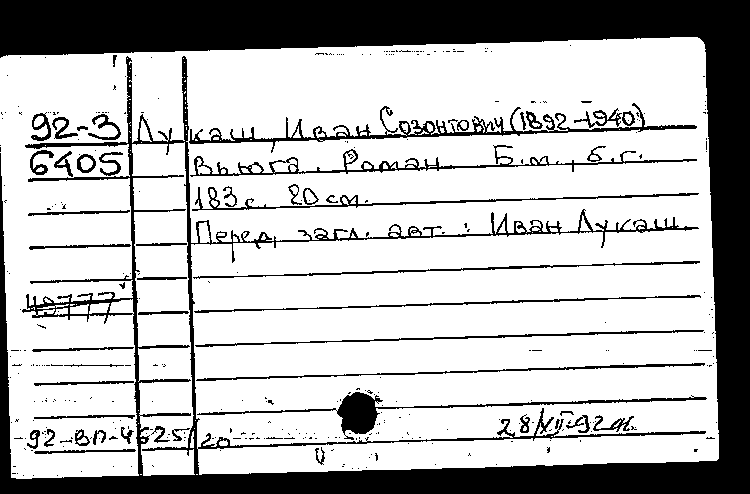 92-3 Лукаш, Иван Созонтович (1892-1940)
6405 Вьюга. Роман. Б.м., б.г.
183 с. 20 см.
Перед загл. авт.: Иван Лукаш.
49777
92-ВП-4625/20
28/XII-92